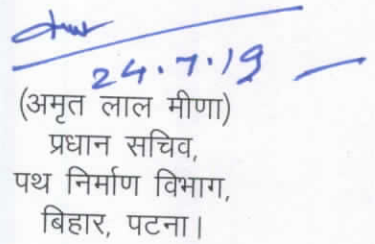 24.7.19
(अमृत लाल मीणा)
प्रधान सचिव,
पथ निर्माण विभाग,
बिहार, पटना।